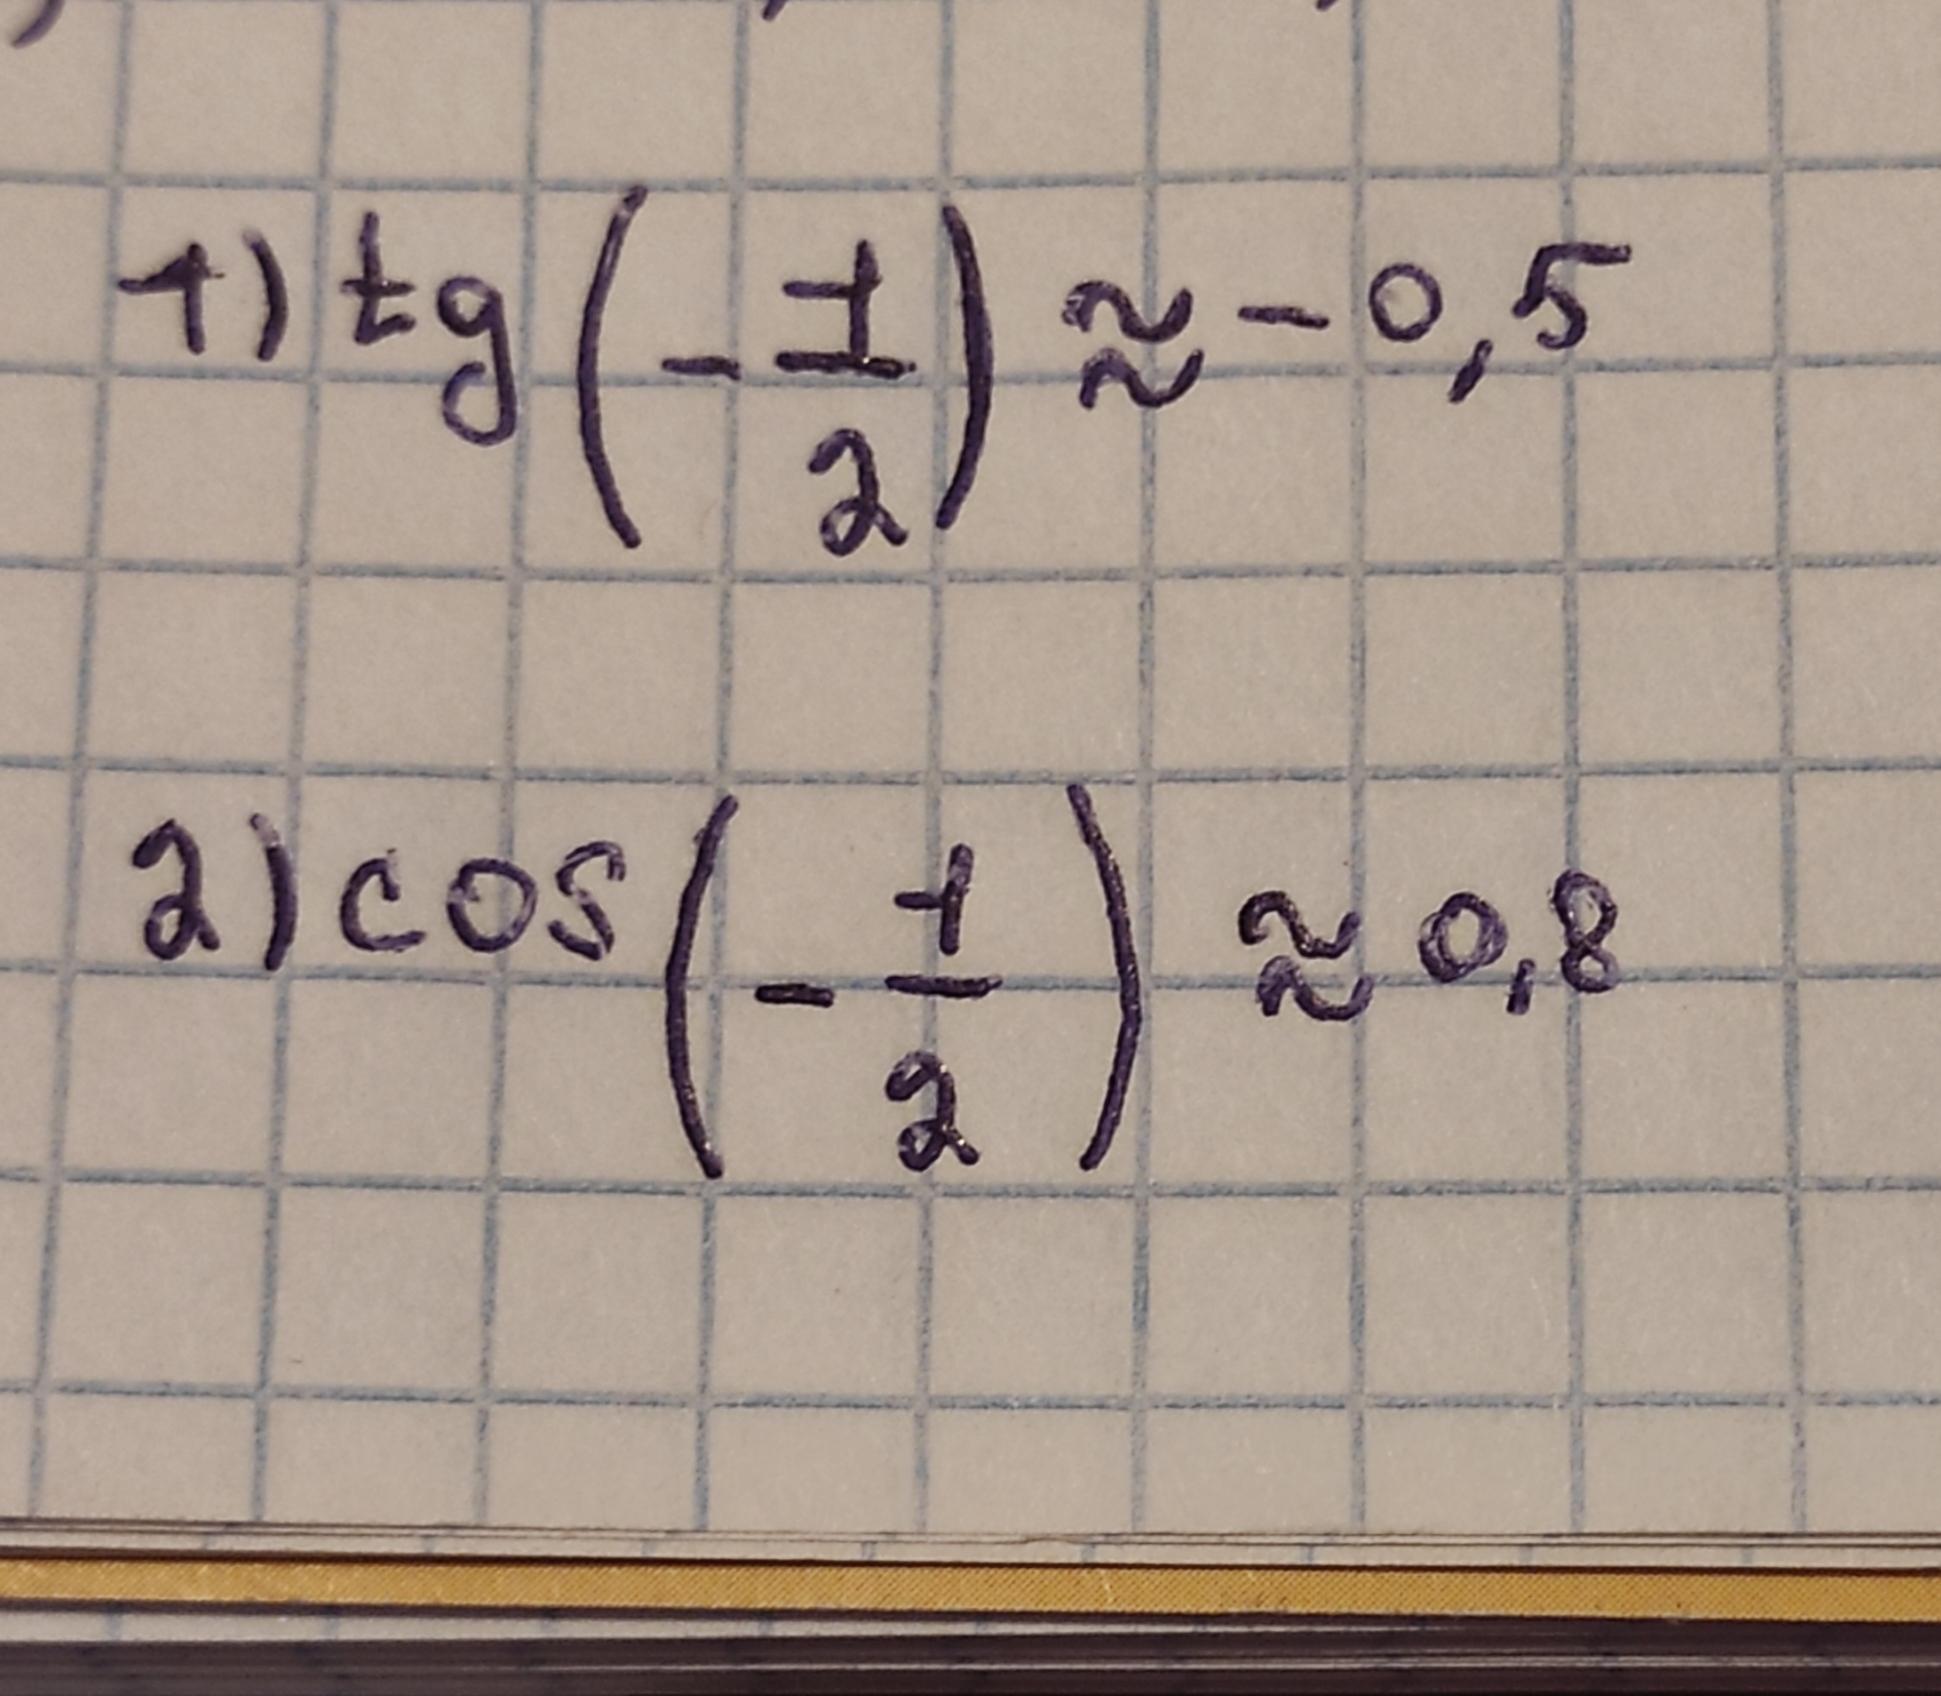 1) tg(-1/2) ≈ -0,5
2) cos(-1/2) ≈ 0,8